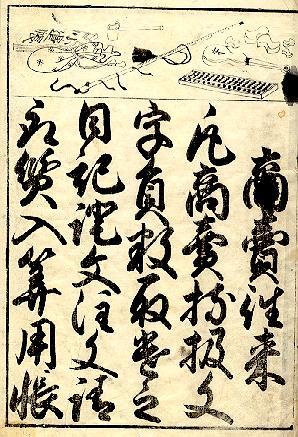 商賣往来
凡商賣持扱文
字員数取遣之
日記證文注文請
取質入算用帳